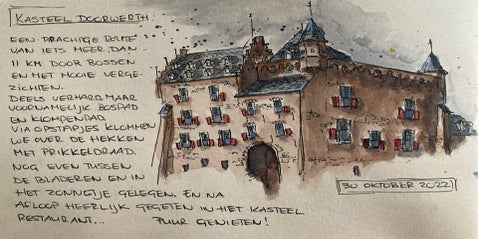 KASTEEL DOORWERTH.
EEN PRACHTIGE ROUTE
VAN IETS MEER DAN
11 KM DOOR BOSSEN
EN MET MOOIE VERGE-
ZICHTEN.
DEELS VERHARD, MAAR
VOORNAMELIJK BOSPAD
EN KLOMPENPAD
VIA OPSTAPJES KLOMMEN
WE OVER DE HEKKEN
MET PRIKKELDRAAD.
NOG EVEN TUSSEN
DE BLADEREN EN IN
HET ZONNETJE GELEGEN. EN NA
AFLOOP HEERLIJK GEGETEN IN HET KASTEEL
RESTAURANT... PUUR GENIETEN!
30 OKTOBER 2022